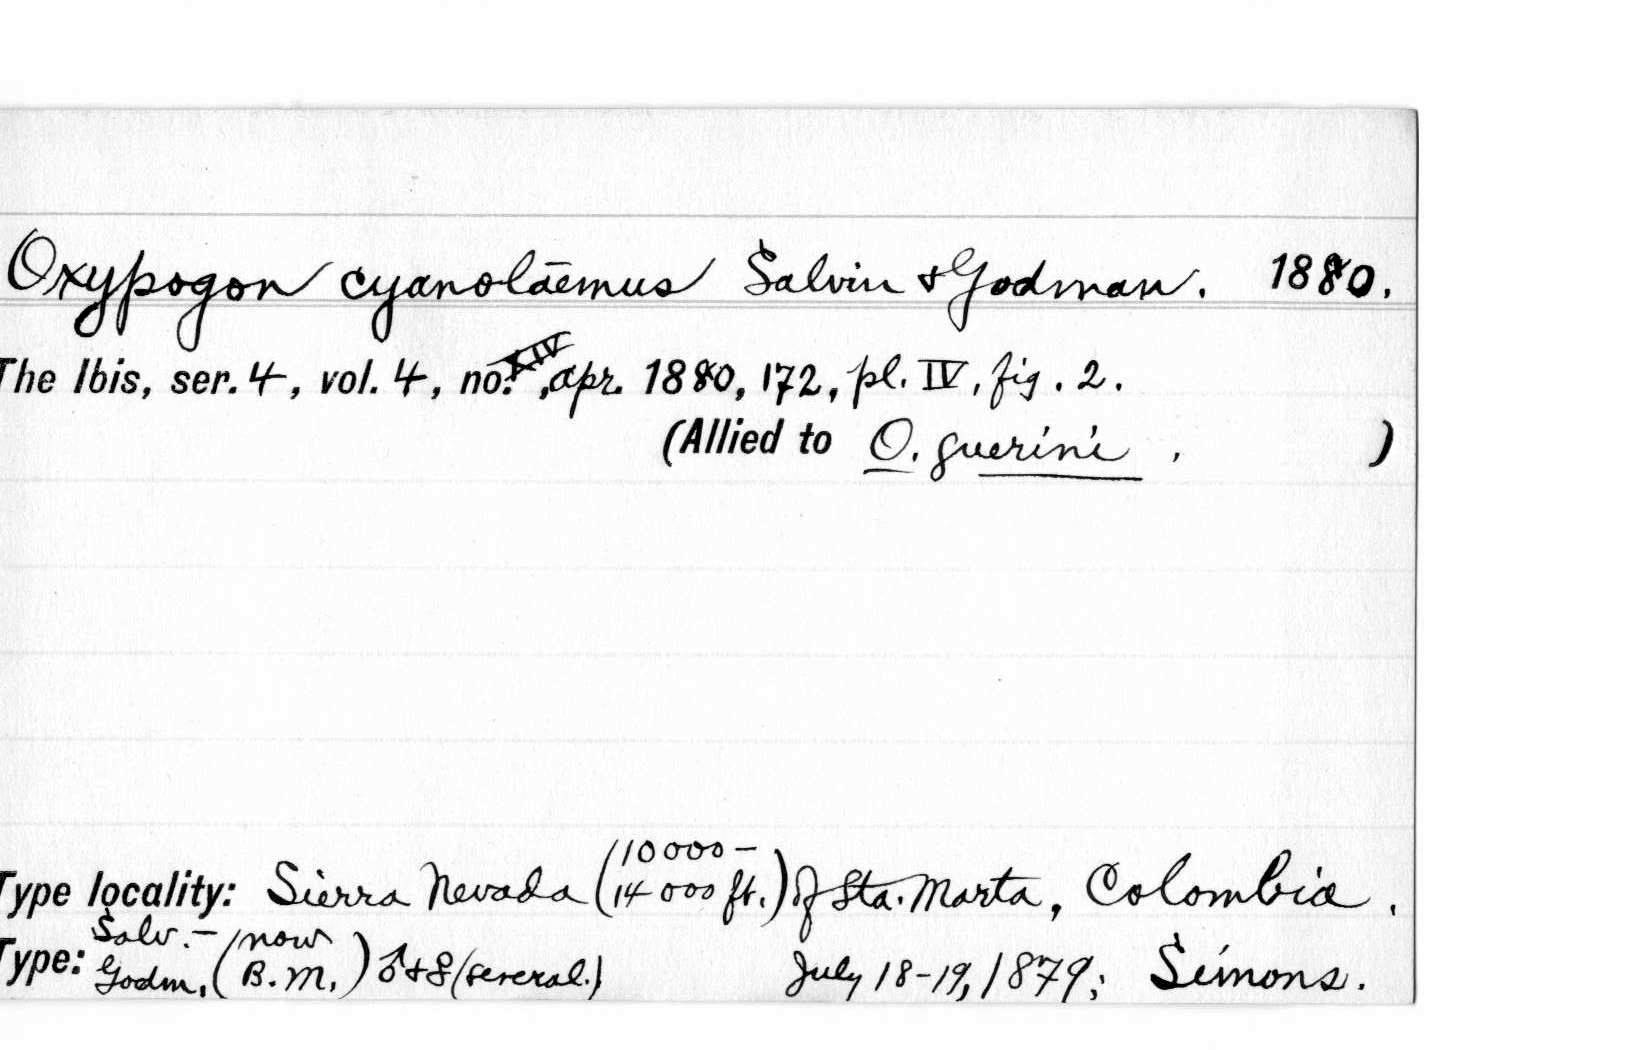 Oxypogon cyanolāemus Salvin & Godman. 1880.
The Ibis, ser. 4, vol. 4, no. XIV, apr. 1880, 172, pl. IV, fig. 2.
(Allied to O. guerini . )
Type locality: Sierra Nevada (10000 – 14000 ft.) of Sta. Marta, Colombia.
Type: Salv. – Godm. (now B.M.) ♂ + ♀ (several.) July 18-19, 1879; Simons.